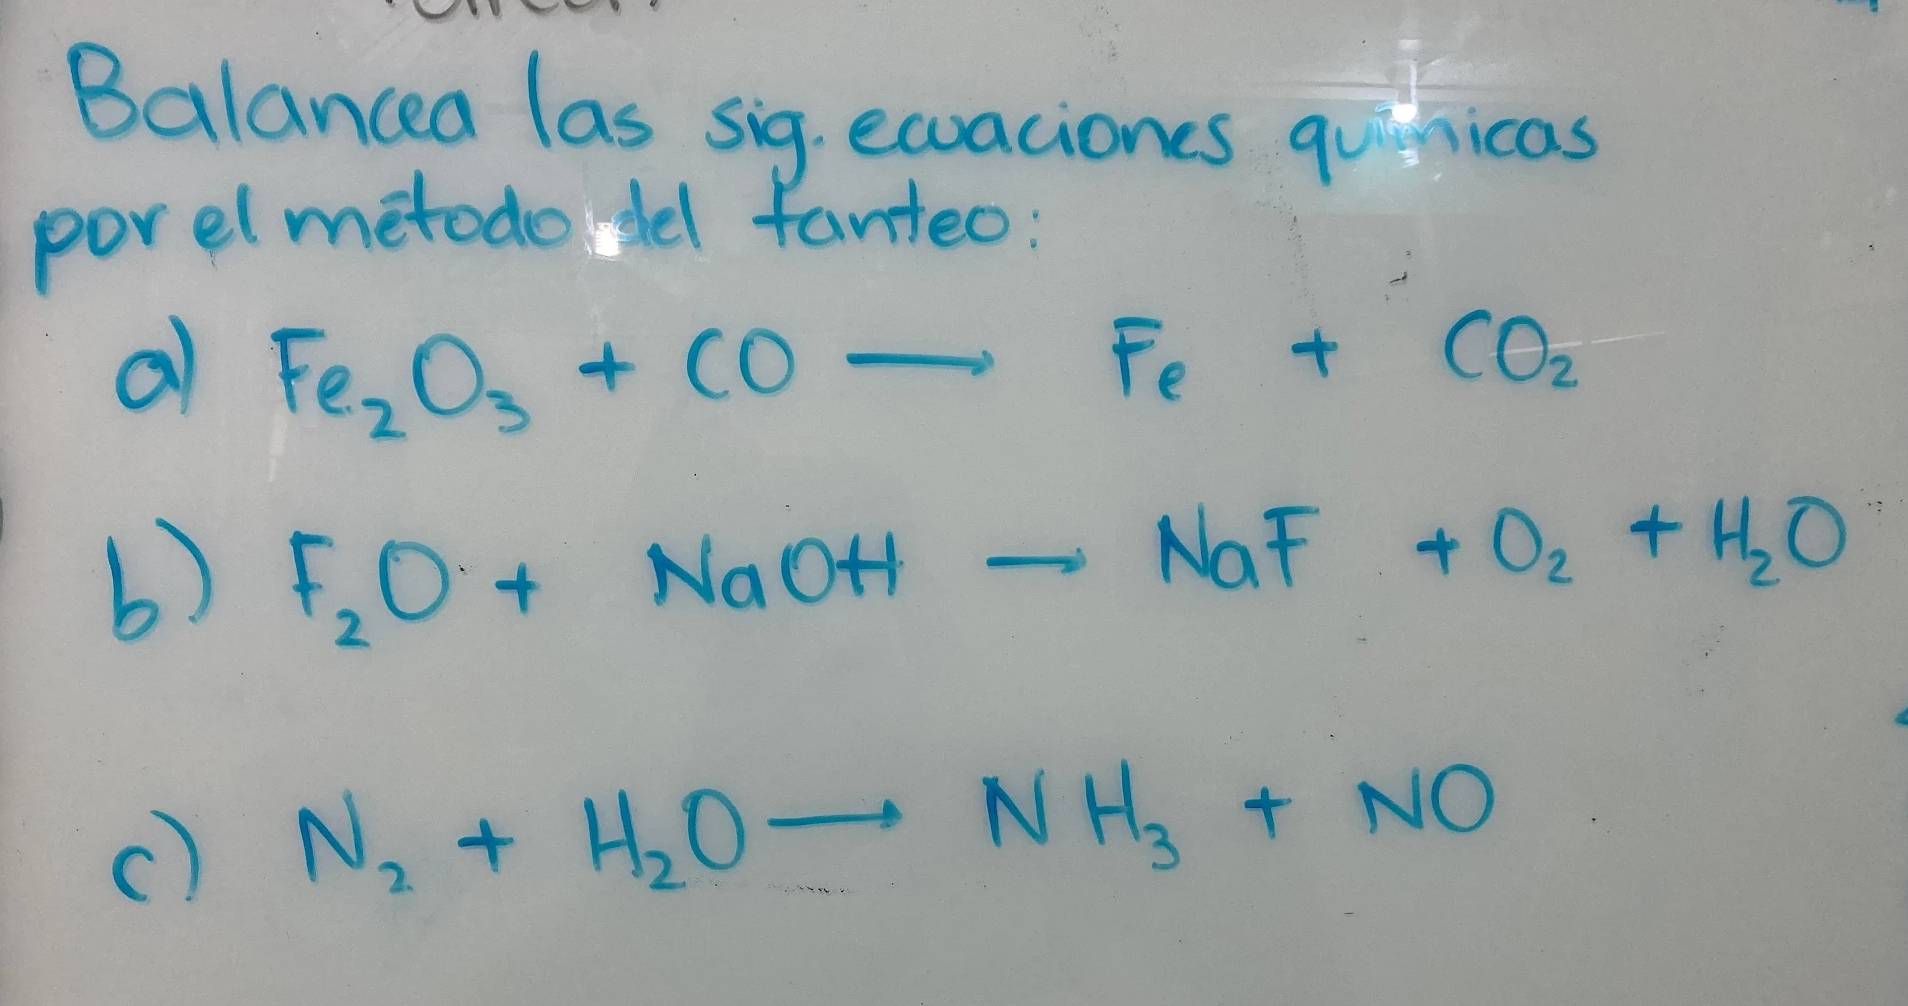 Balancea las sig. ecuaciones químicas
por el método del tanteo:
a) Fe₂O₃ + CO → Fe + CO₂
b) F₂O + NaOH → NaF + O₂ + H₂O
c) N₂ + H₂O → NH₃ + NO